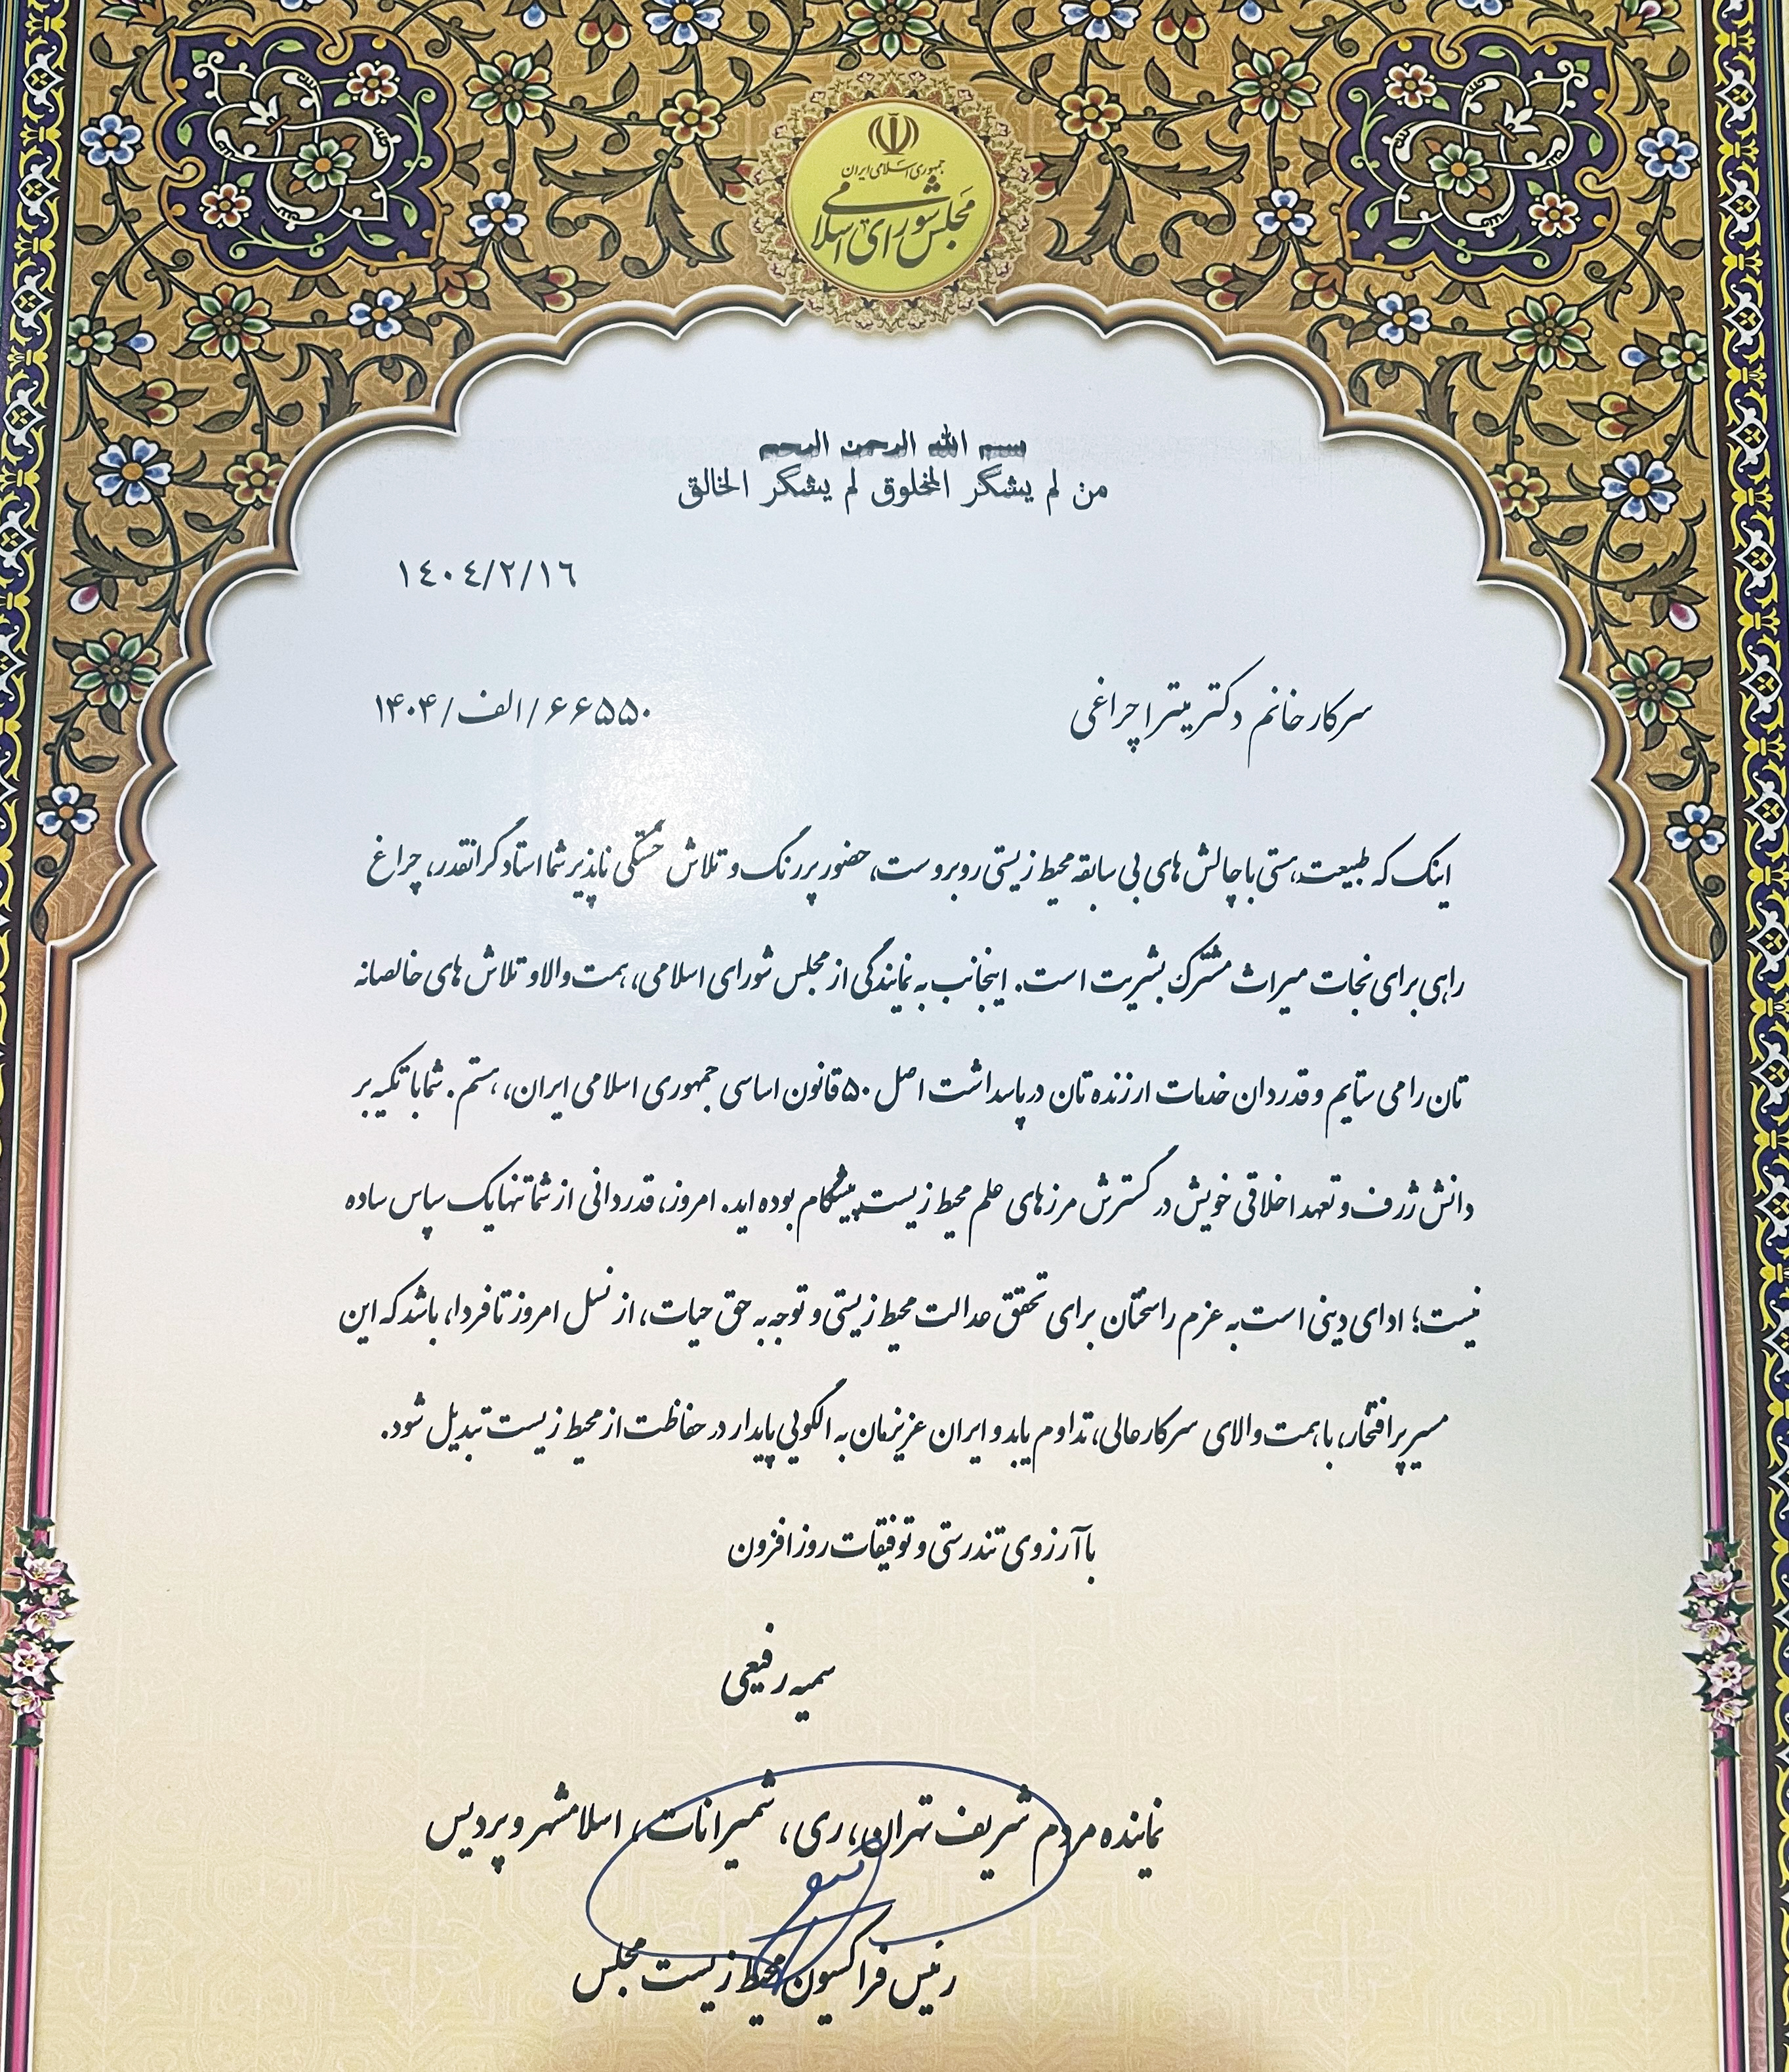 جمهوری اسلامی ایران
مجلس شورای اسلامی
بسم الله الرحمن الرحیم
من لم یشکر المخلوق لم یشکر الخالق
١٤٠٤/٢/١٦
سرکار خانم دکتر میترا چراغی
۶۶۵۵۰/الف/۱۴۰۴
اینک که طبیعت هستی با چالش های بی سابقه محیط زیستی روبروست، حضور پررنگ و تلاش خستگی ناپذیر شما استاد گرانقدر، چراغ
راهی برای نجات میراث مشترک بشریت است. اینجانب به نمایندگی از مجلس شورای اسلامی، همت والا و تلاش های خالصانه
تان را می ستایم و قدردان خدمات ارزنده تان در پاسداشت اصل ۵۰ قانون اساسی جمهوری اسلامی ایران، هستم. شما با تکیه بر
دانش ژرف و تعهد اخلاقی خویش در گسترش مرزهای علم محیط زیست پیشگام بوده اید. امروز، قدردانی از شما تنها یک سپاس ساده
نیست؛ ادای دینی است به عزم راسختان برای تحقق عدالت محیط زیستی و توجه به حق حیات، از نسل امروز تا فردا، باشد که این
مسیر پرافتخار، با همت والای سرکارعالی، تداوم یابد و ایران عزیزمان به الگویی پایدار در حفاظت از محیط زیست تبدیل شود.
با آرزوی تندرستی و توفیقات روزافزون
سمیه رفیعی
نماینده مردم شریف تهران، ری، شمیرانات، اسلامشهر و پردیس
رئیس فراکسیون محیط زیست مجلس